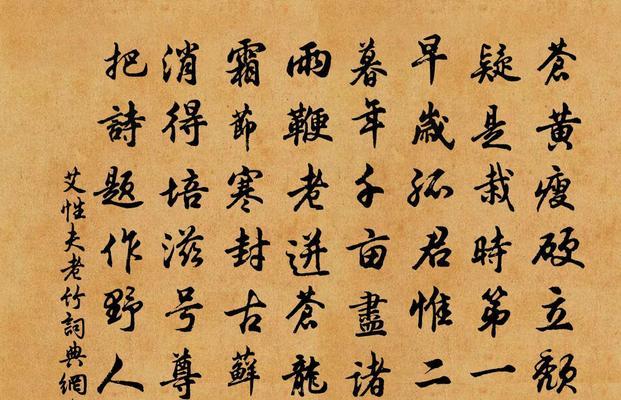 蒼黃瘦硬立頹
疑是栽時第一
早歲孤君惟二
暮年千亩盡諸
雨鞭老迸蒼龍
霜節寒封古蘚
消得培滋号尊
把詩題作野人
艾性夫老竹詞典網